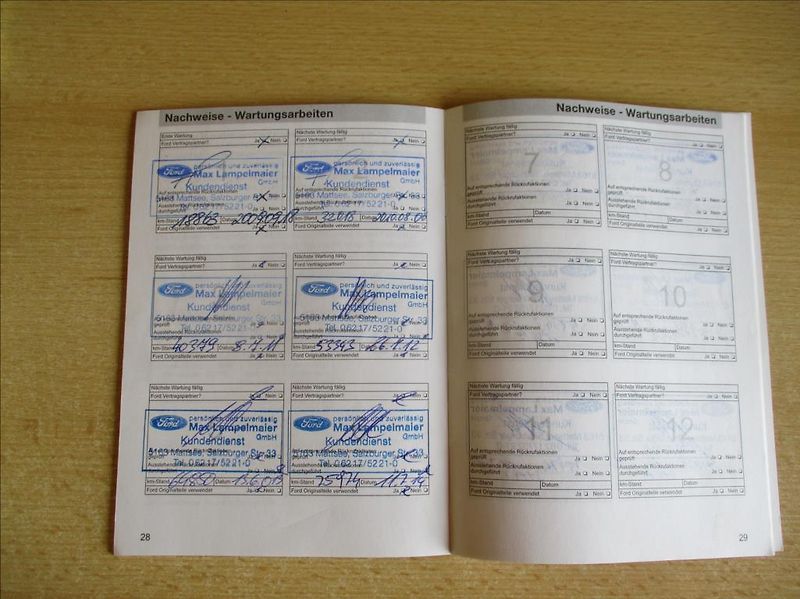 Nachweise - Wartungsarbeiten
Erste Wartung
Ford Vertragspartner? Ja Nein
Ford
persönlich und zuverlässig
Max Lampelmaier
GmbH
Kundendienst
5163 Mattsee, Salzburger Str. 33
Tel. 06217/5221-0
km-Stand 18863 Datum
Ford Originalteile verwendet Ja Nein
Nächste Wartung fällig
Ford Vertragspartner? Ja Nein
Ford
persönlich und zuverlässig
Max Lampelmaier
GmbH
Kundendienst
5163 Mattsee, Salzburger
Tel. 06217/5221-0
km-Stand Datum
Ford Originalteile verwendet Ja Nein
Nächste Wartung fällig
Ford Vertragspartner? Ja Nein
Ford
persönlich und zuverlässig
Max Lampelmaier
GmbH
Kundendienst
5163 Mattsee, Salzburger Str. 33
Tel. 06217/5221-0
40379 Datum 8.7.11
Ford Originalteile verwendet Ja Nein
Nächste Wartung fällig
Ford Vertragspartner? Ja Nein
Ford
persönlich und zuverlässig
Max Lampelmaier
GmbH
Kundendienst
5163 Mattsee, Salzburger Str. 33
Tel. 06217/5221-0
km-Stand 53343 Datum 26.7.12
Ford Originalteile verwendet Ja Nein
Nächste Wartung fällig
Ford Vertragspartner? Ja Nein
Ford
persönlich und zuverlässig
Max Lampelmaier
GmbH
Kundendienst
5163 Mattsee, Salzburger Str. 33
Tel. 06217/5221-0
km-Stand Datum
Ford Originalteile verwendet Ja Nein
Nächste Wartung fällig
Ford Vertragspartner? Ja Nein
Ford
persönlich und zuverlässig
Max Lampelmaier
GmbH
Kundendienst
5163 Mattsee, Salzburger Str. 33
Tel. 06217/5221-0
km-Stand 75974 Datum 11.7.14
Ford Originalteile verwendet Ja Nein
28
Nachweise - Wartungsarbeiten
Nächste Wartung fällig
Ford Vertragspartner? Ja Nein
7
Auf entsprechende Rückrufaktionen
geprüft Ja Nein
Ausstehende Rückrufaktionen
durchgeführt Ja Nein
km-Stand Datum
Ford Originalteile verwendet Ja Nein
Nächste Wartung fällig
Ford Vertragspartner? Ja Nein
8
Auf entsprechende Rückrufaktionen
geprüft Ja Nein
Ausstehende Rückrufaktionen
durchgeführt Ja Nein
km-Stand Datum
Ford Originalteile verwendet Ja Nein
Nächste Wartung fällig
Ford Vertragspartner? Ja Nein
9
Auf entsprechende Rückrufaktionen
geprüft Ja Nein
Ausstehende Rückrufaktionen
durchgeführt Ja Nein
km-Stand Datum
Ford Originalteile verwendet Ja Nein
Nächste Wartung fällig
Ford Vertragspartner? Ja Nein
10
Auf entsprechende Rückrufaktionen
geprüft Ja Nein
Ausstehende Rückrufaktionen
durchgeführt Ja Nein
km-Stand Datum
Ford Originalteile verwendet Ja Nein
Nächste Wartung fällig
Ford Vertragspartner? Ja Nein
11
Auf entsprechende Rückrufaktionen
geprüft Ja Nein
Ausstehende Rückrufaktionen
durchgeführt Ja Nein
km-Stand Datum
Ford Originalteile verwendet Ja Nein
Nächste Wartung fällig
Ford Vertragspartner? Ja Nein
12
Auf entsprechende Rückrufaktionen
geprüft Ja Nein
Ausstehende Rückrufaktionen
durchgeführt Ja Nein
km-Stand Datum
Ford Originalteile verwendet Ja Nein
29